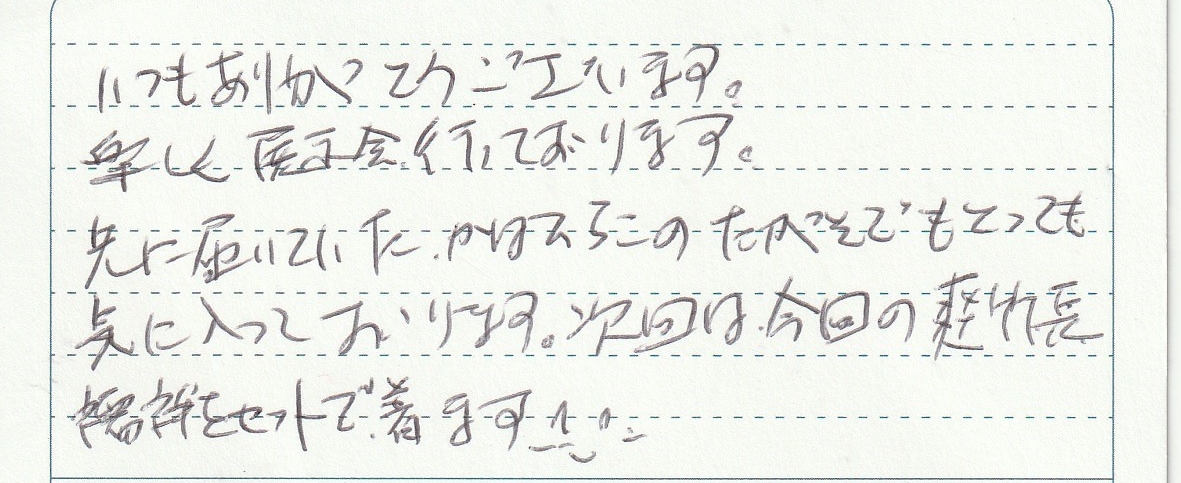 いつもありがとうございます。
楽しく展示会行っております。
先に届いていた、かはひらこのたがそでもとっても
気に入っております。次回は、今回の長
襦袢をセットで着ます